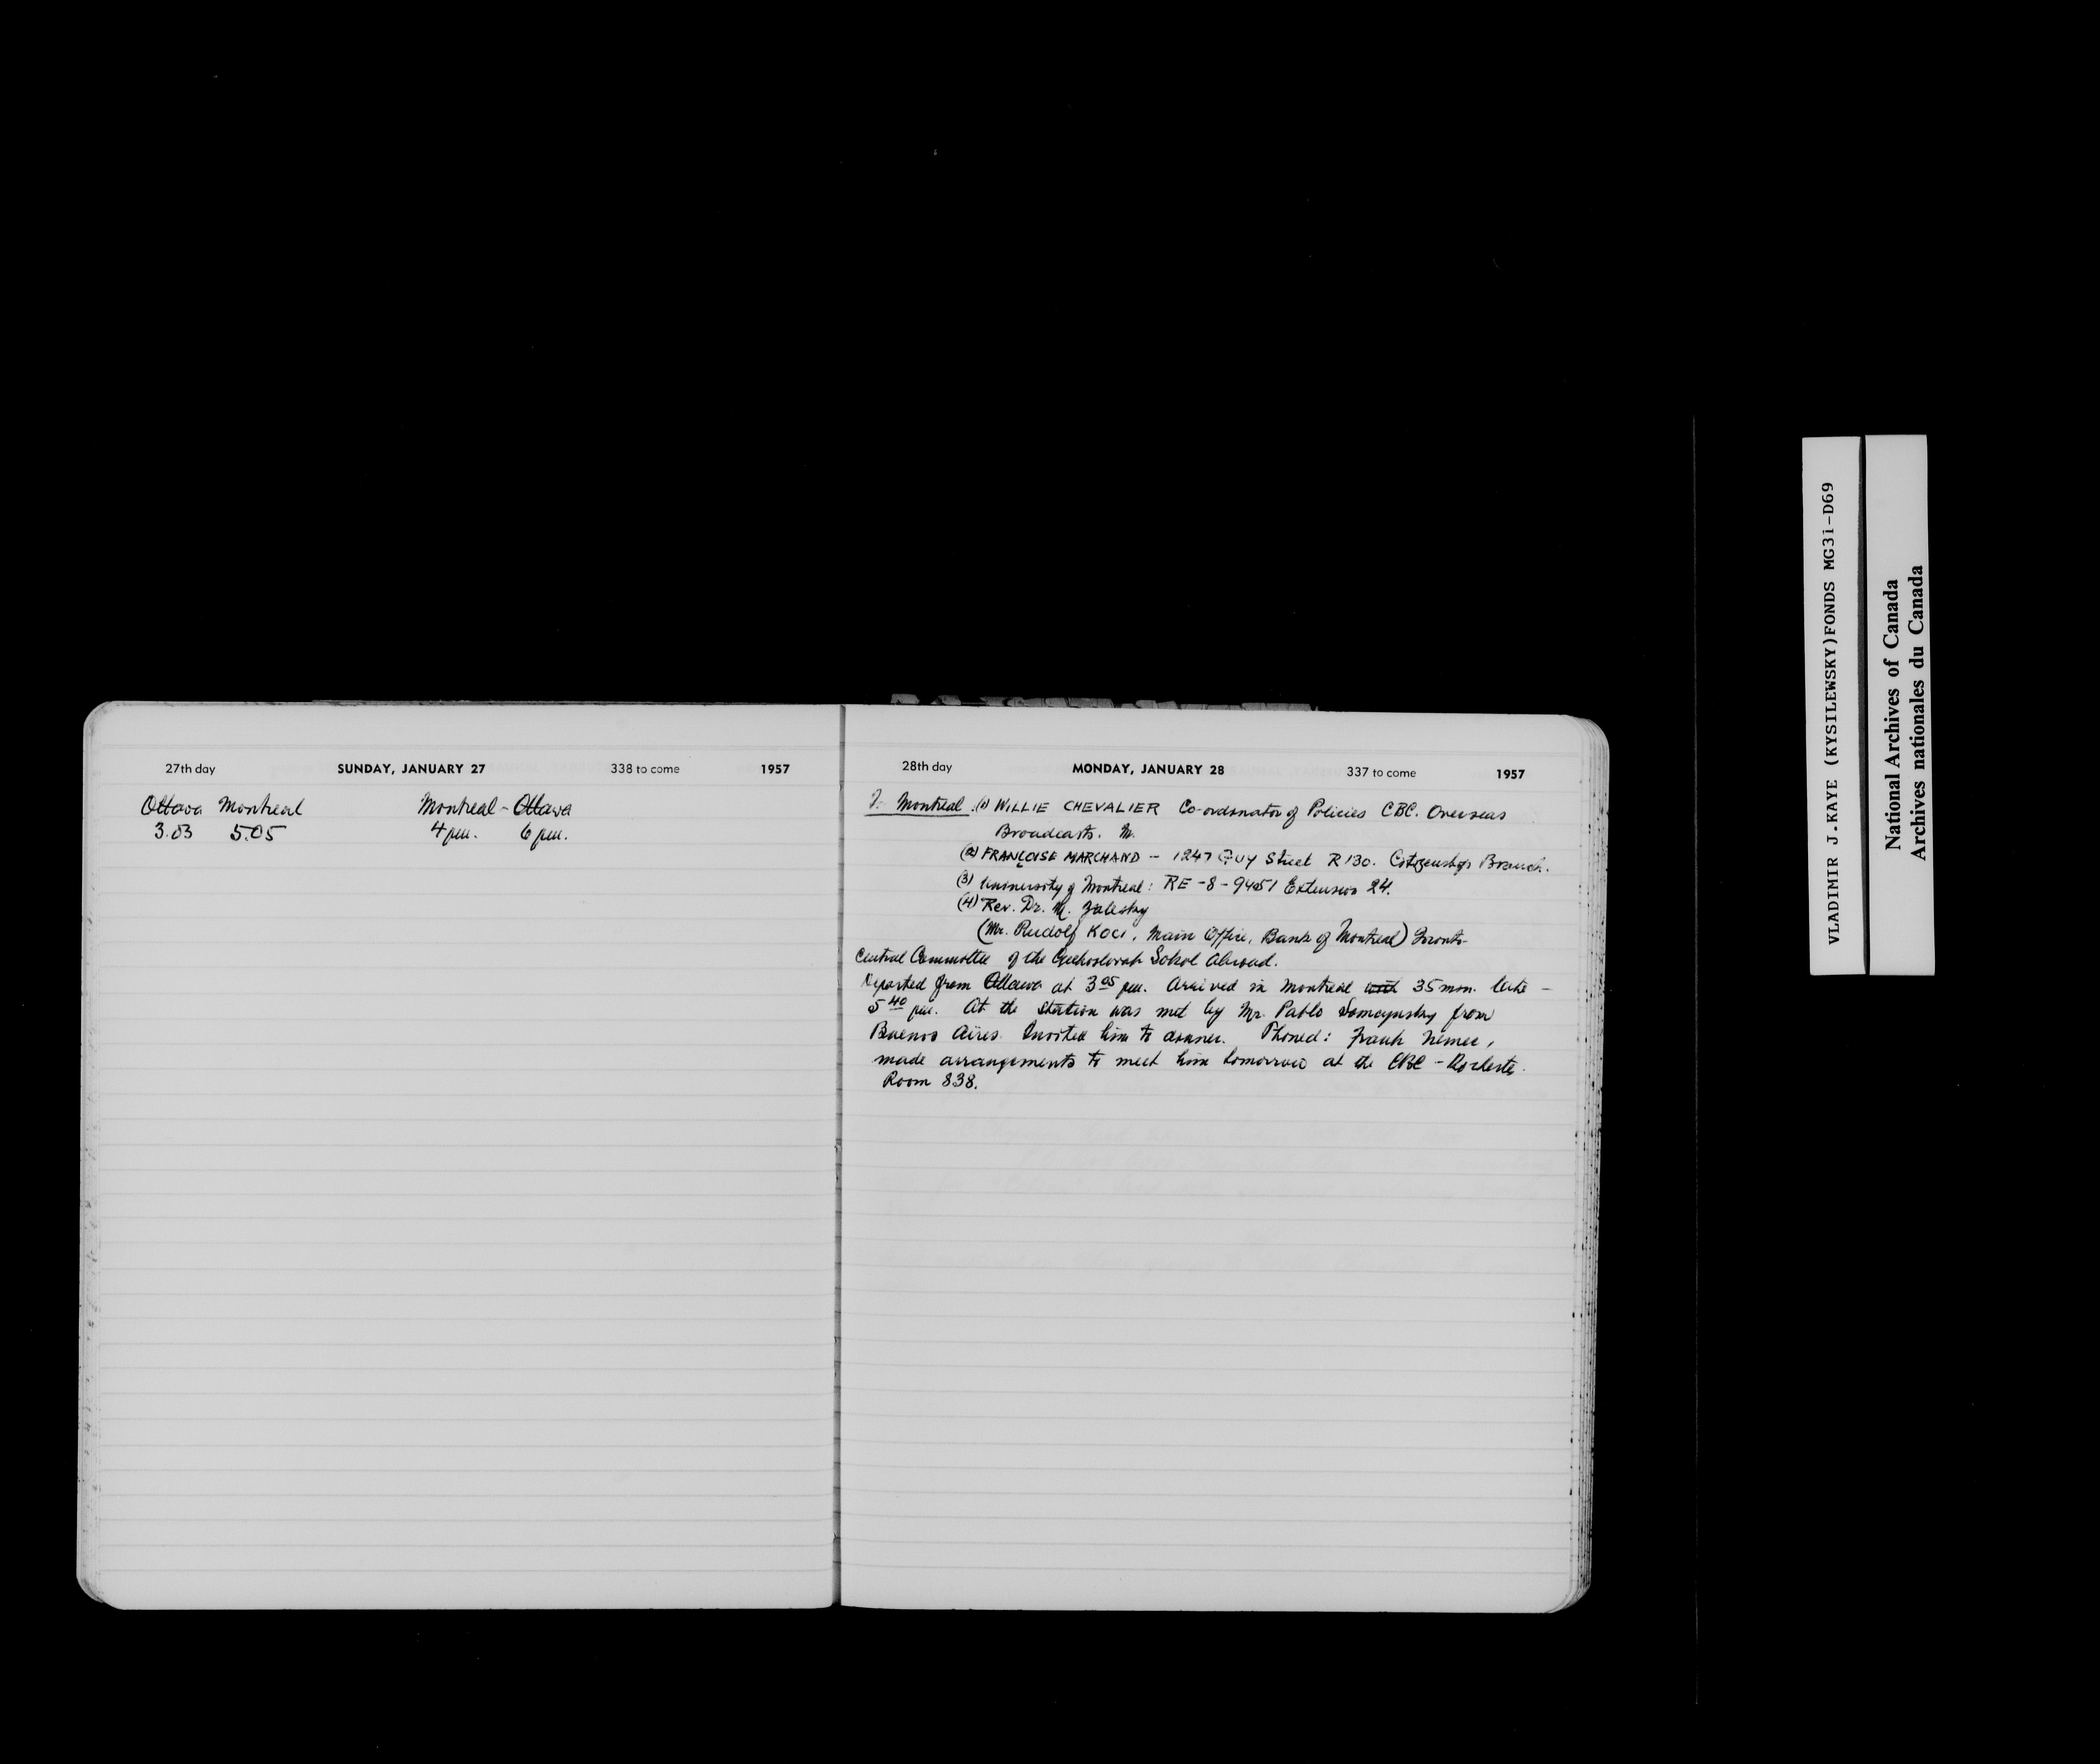 27th day SUNDAY, JANUARY 27 338 to come 1957
Ottawa Montreal Montreal - Ottawa
3.03 5.05 4 pm. 6 pm.
28th day MONDAY, JANUARY 28 337 to come 1957
Montreal. (1) WILLIE CHEVALIER Co-ordinator of Policies CBC. Overseas
Broadcasts. M.
(2) FRANÇOISE MARCHAND - 1247 Guy Street R 130. Citizenship Branch.
(3) University of Montreal: RE-8-9451 Extension 24.
(4) Rev. Dr. M. Zalesky
(Mr. Rudolf KOCI, Main Office, Bank of Montreal) Toronto
Central Committee of the Czechoslovak Sokol Abroad.
Departed from Ottawa at 3 05 pm. Arrived in Montreal with 35 min. late -
5 40 pm. At the station was met by Mr. Pablo from
Buenos Aires. Invited him to dinner. Phoned: Frank Nemec,
made arrangements to meet him tomorrow at the CBC - Dorchester
Room 838.
VLADIMIR J.KAYE (KYSILEWSKY)FONDS MG31-D69
National Archives of Canada
Archives nationales du Canada